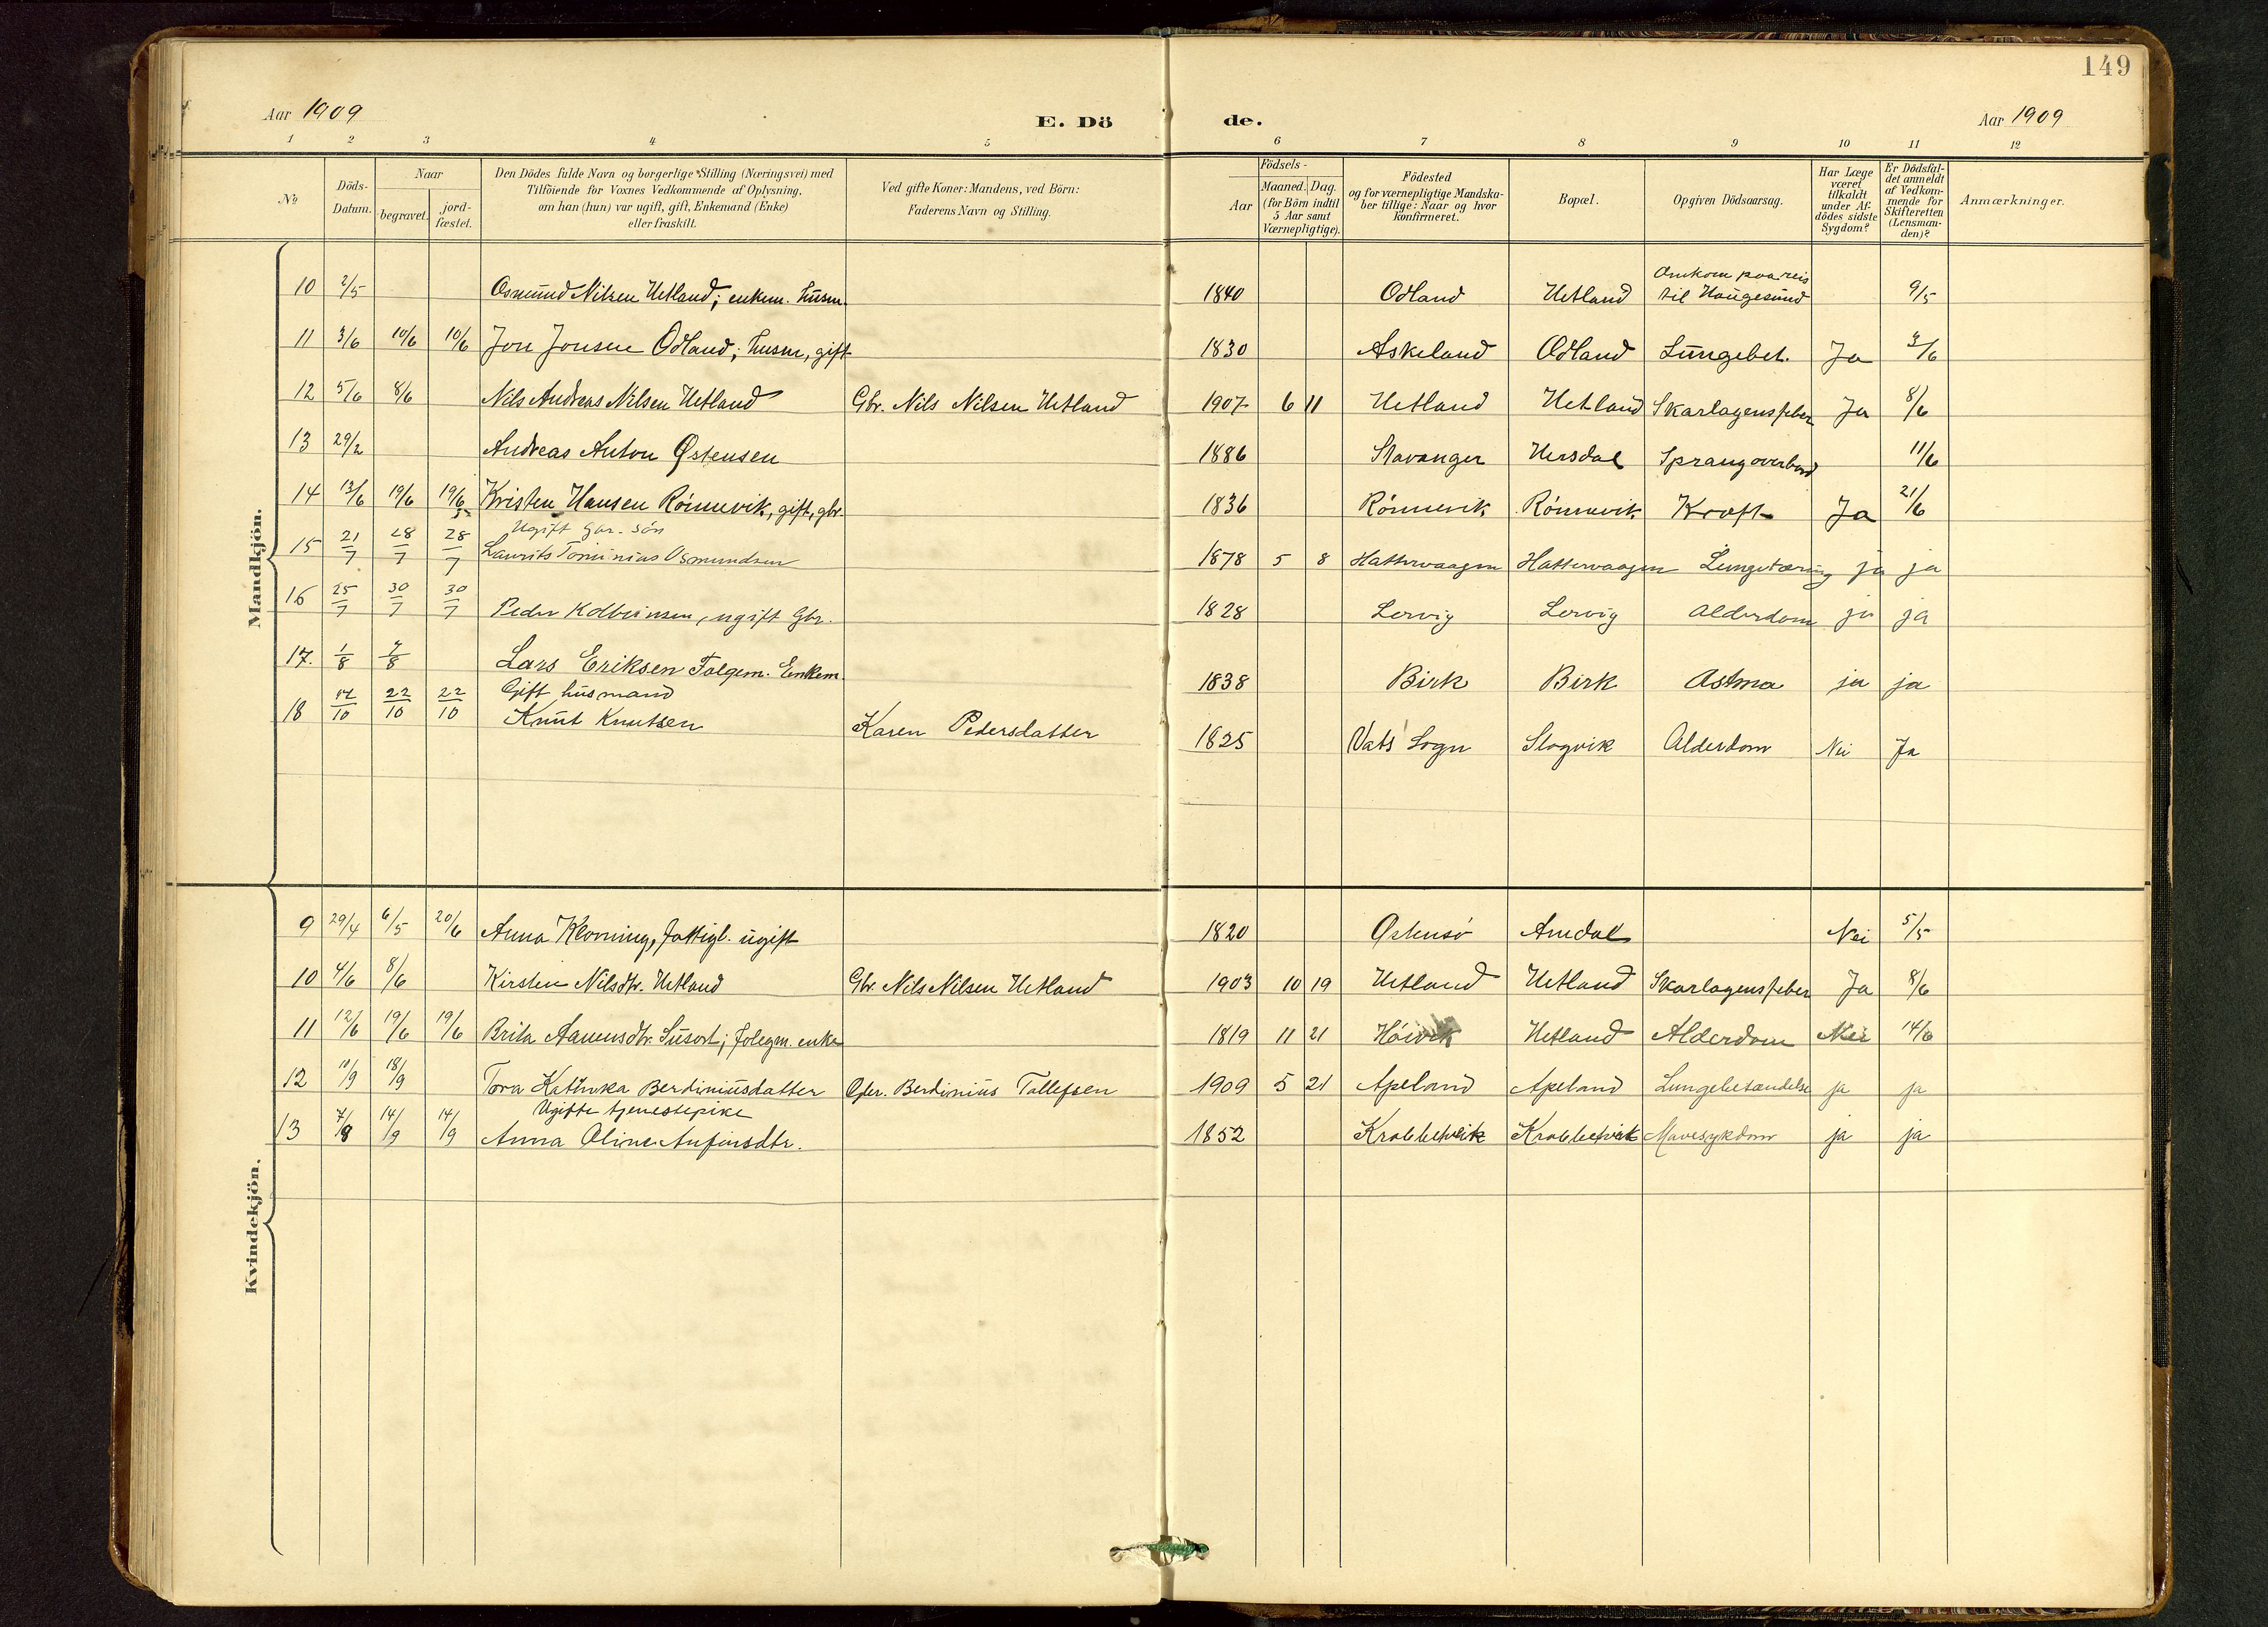 149
Aar 1909
E. Dö de.
Aar 1909
1 2 3 4 5 6 7 8 9 10 11 12
№
Döds-Datum.
Naar
begravet.
jord-fæstet.
Den Dödes fulde Navn og borgerlige Stilling (Næringsvei) med
Tilföiende for Voxnes Vedkommende af Oplysning,
om han (hun) var ugift, gift, Enkemand (Enke)
eller fraskilt.
Ved gifte Koner: Mandens, ved Börn:
Faderens Navn og Stilling.
Födsels-
Aar
Maaned. Dag.
(for Börn indtil
5 Aar samt
Værnepligtige).
Födested
og for værnepligtige Mandska-
ber tillige: Naar og hvor
konfirmeret.
Bopæl.
Opgiven Dödsaarsag.
Har Læge
været
tilkaldt
under Af-
dödes sidste
Sygdom?
Er Dödsfal-
det anmeldt
af Vedkom-
mende for
Skifteretten
(Lensman-
den)?
Anmærkninger.
Mandkjön.
10 2/5 Osmund Nilsen Uetland; enkem. husm. 1840 Odland Uetland Omkom paa reis til Haugesund 9/5
11 3/6 10/6 10/6 Jon Jonsen Odland; husm, gift 1830 Askeland Odland Lungebet. Ja 3/6
12 5/6 8/6 Nils Andreas Nilsen Uetland Gbr. Nils Nilsen Uetland 1907 6 11 Uetland Uetland Skarlagensfeber Ja 8/6
13 29/2 Andreas Anton Østensen 1886 Stavanger Uersdal Sprang overbord 11/6
14 13/6 19/6 19/6 Kristen Hansen Rönnevik, gift, gbr. 1836 Rönnevik Rönnevik Kræft Ja 21/6
Ugift Gbr. sön
15 21/7 28/7 28/7 Laurits Tominius Osmundsen 1878 5 8 Hattervaagen Hattervaagen Lungetæring ja ja
16 25/7 30/7 30/7 Peder Kolbeinsen, ugift Gbr. 1828 Lervig Lervig Alderdom ja ja
17. 1/8 7/8 Lars Eriksen Folgem. Enkem. 1838 Birk Birk Astma ja ja
Gift husmand
18 14/10 22/10 22/10 Knut Knutsen Karen Pedersdatter 1825 Vats Sogn Slogvik Alderdom Nei Ja
Kvindekjön.
9 29/4 6/5 20/6 Anna Klovning, fattigl. ugift 1820 Østensö Amdal Nei 5/5
10 4/6 8/6 Kirsten Nilsdtr. Uetland Gbr. Nils Nilsen Uetland 1903 10 19 Uetland Uetland Skarlagensfeber Ja 8/6
11 12/6 19/6 19/6 Brita Aanensdtr. Susort; folegm. enke 1819 11 21 Höivik Uetland Alderdom Nei 14/6
12 10/9 18/9 Tora Kathrika Berdiniusdatter Gbr. Berdinius Tollefsen 1909 5 21 Apeland Apeland Lungebetændelse ja ja
Ugifte tjenestepike
13 7/9 14/9 14/9 Anna Oline Anfinsdtr. 1852 Krabbetveit Krabbetveit Mavesykdom ja ja